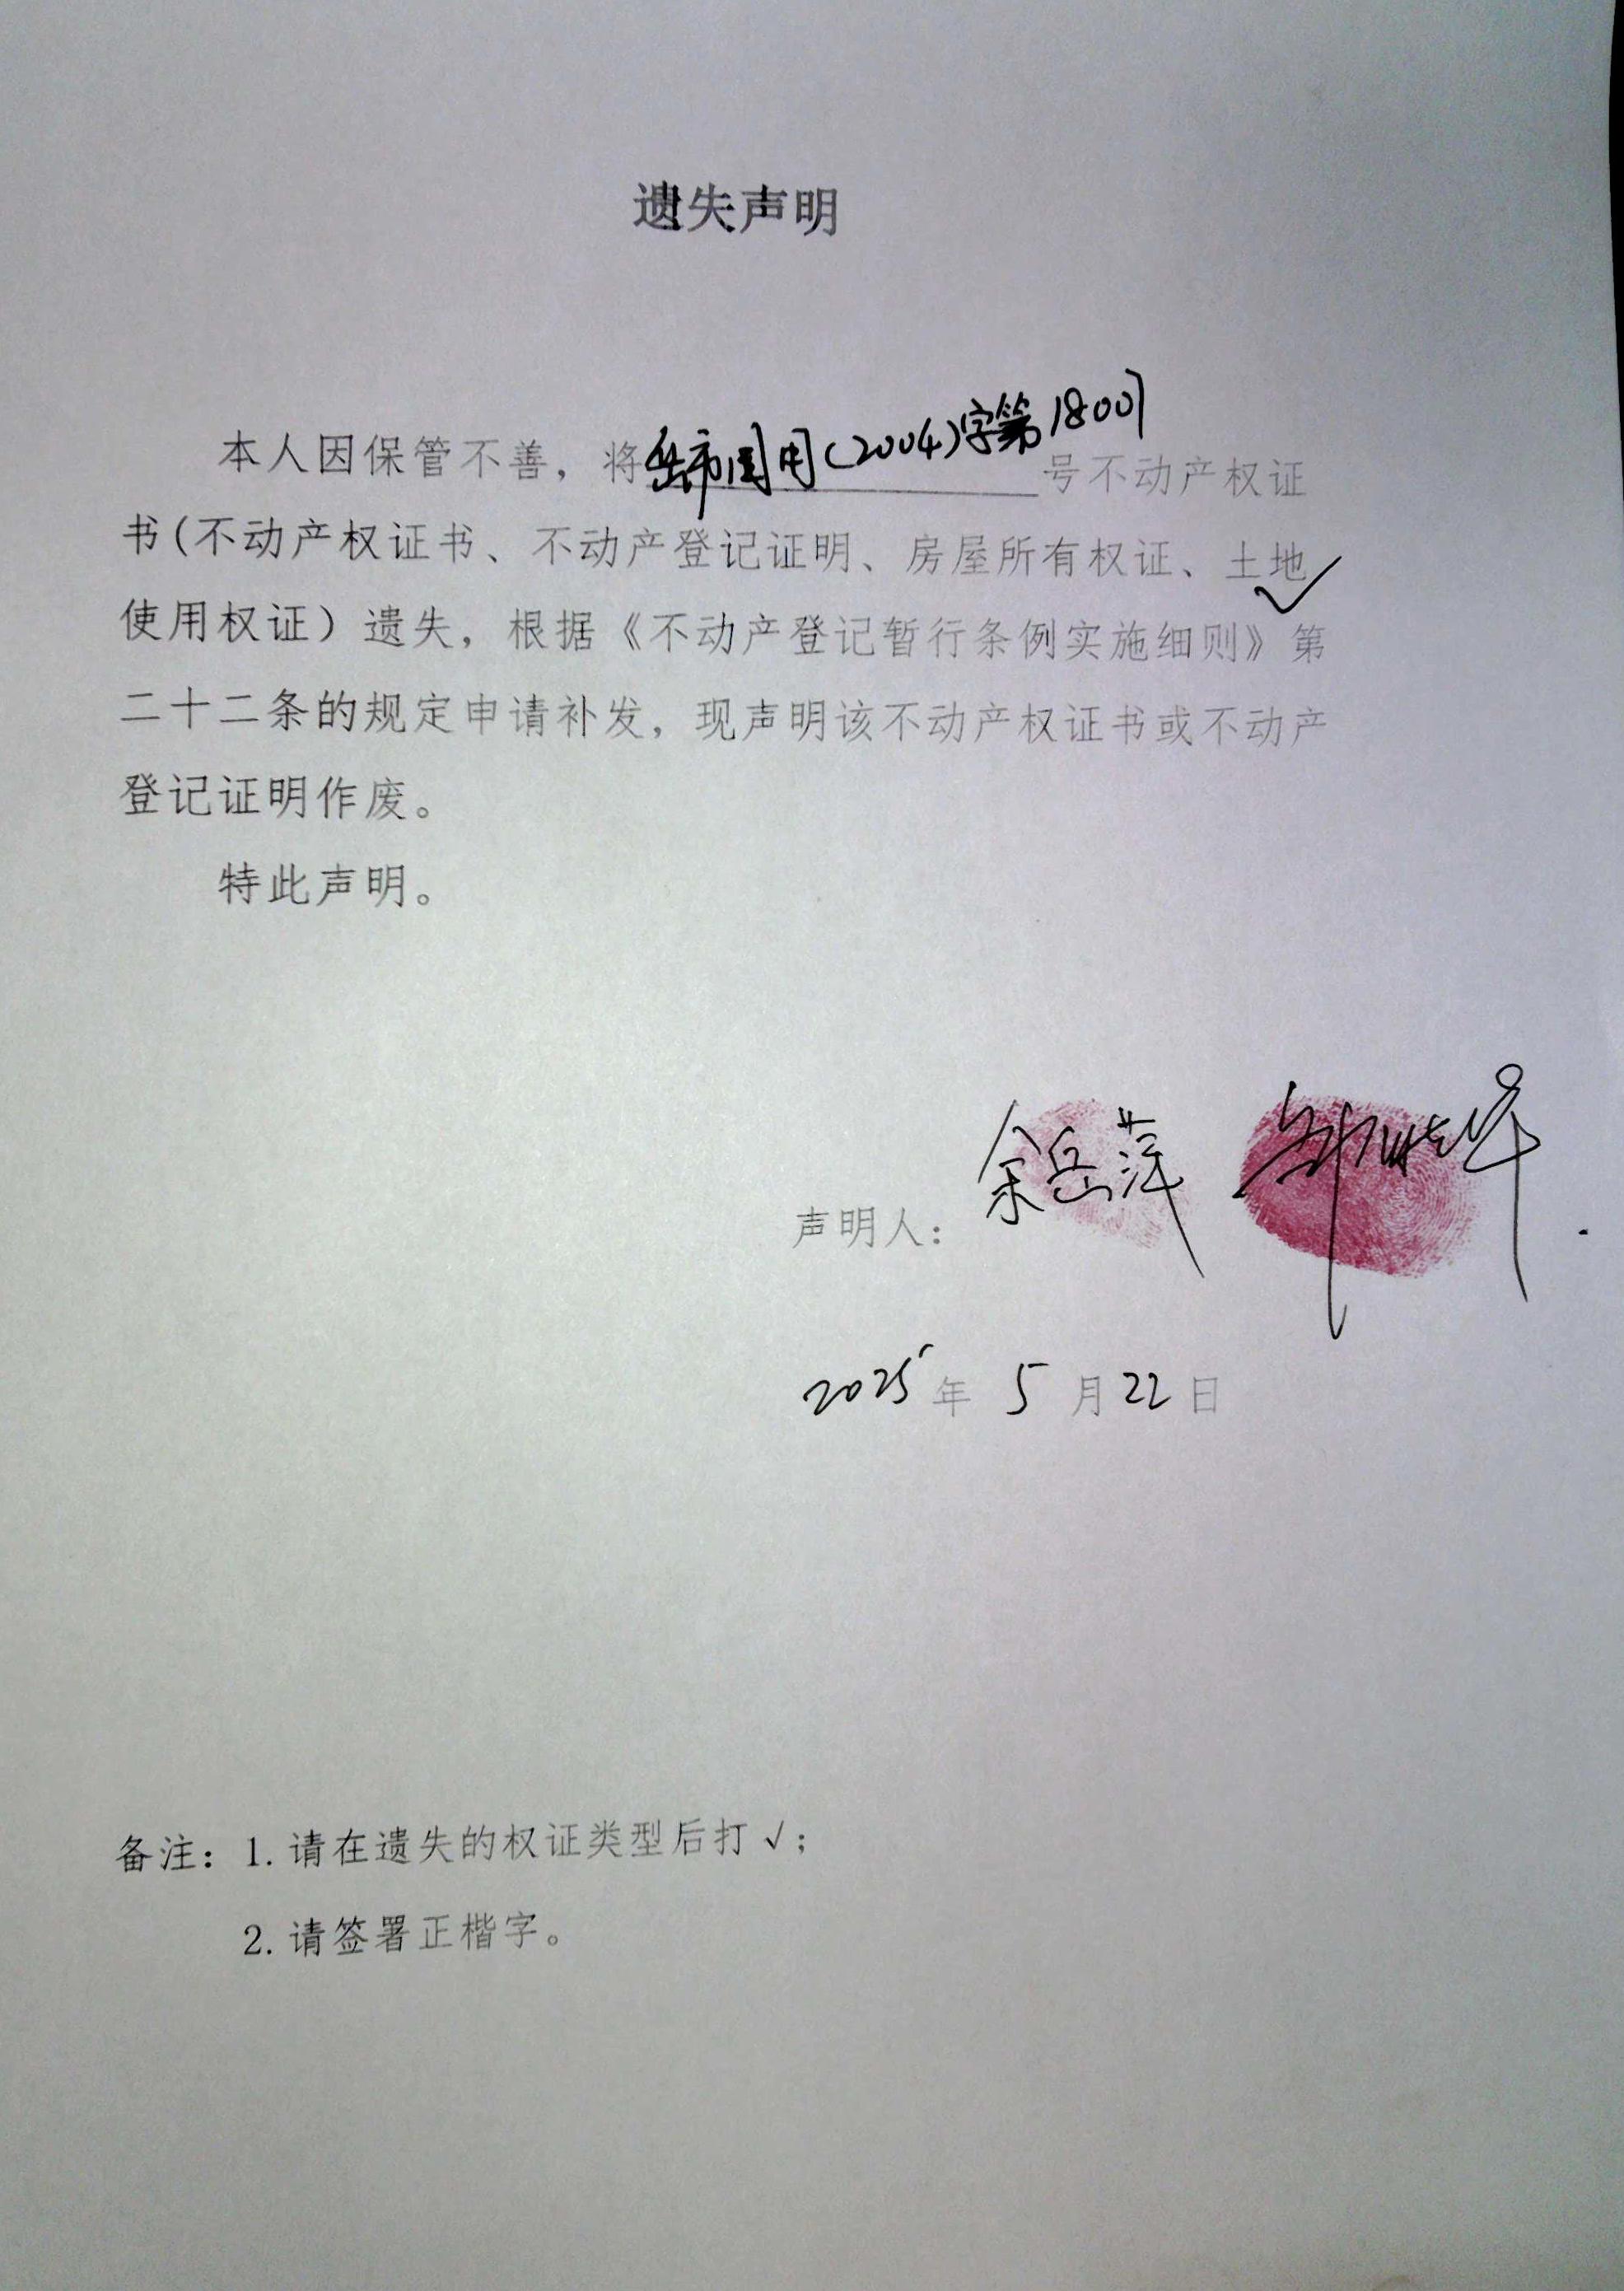 遗失声明
本人因保管不善，将岳市国用(2004)字第18001号不动产权证
书(不动产权证书、不动产登记证明、房屋所有权证、土地✓
使用权证）遗失，根据《不动产登记暂行条例实施细则》第
二十二条的规定申请补发，现声明该不动产权证书或不动产
登记证明作废。
特此声明。
声明人：余岳萍
2025年5月22日
备注：1.请在遗失的权证类型后打√；
2.请签署正楷字。